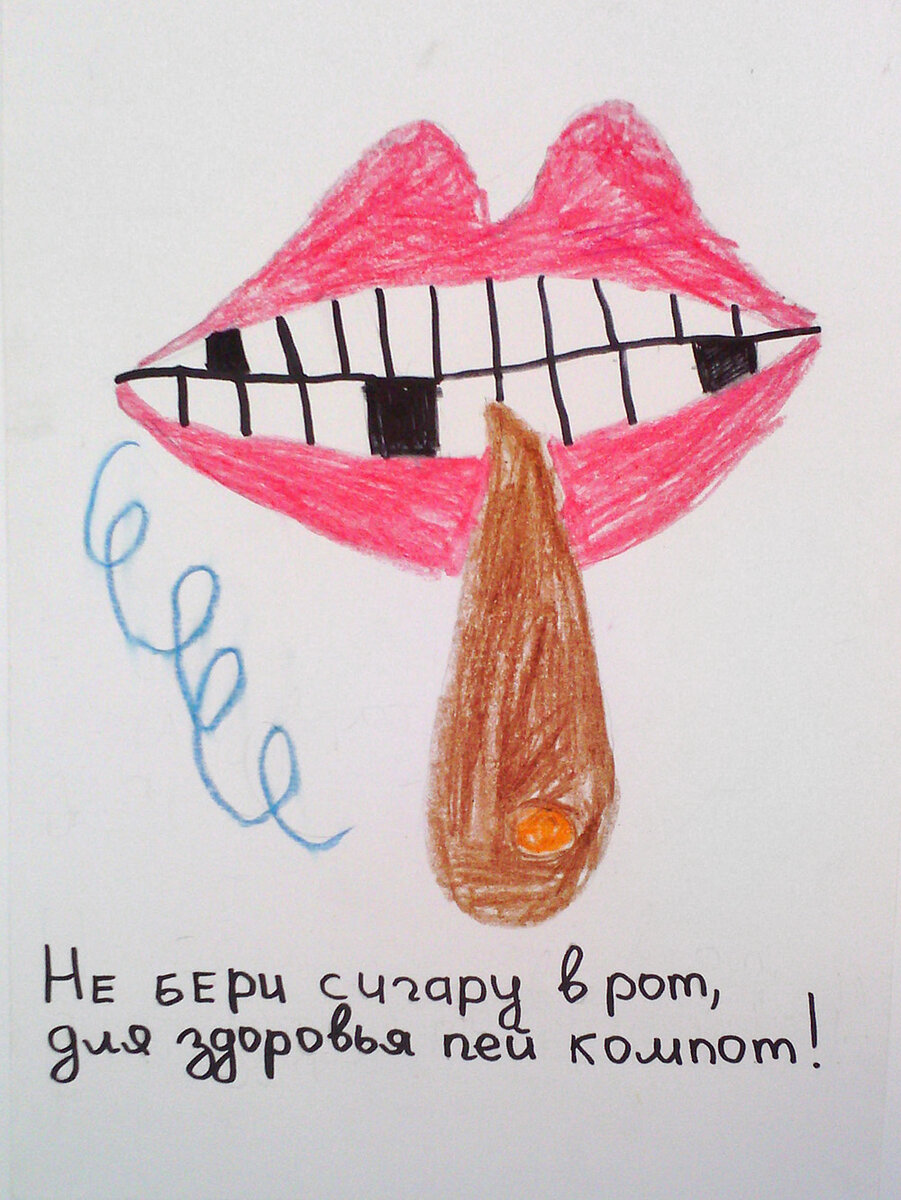 Не бери сигару в рот,
для здоровья пей компот!